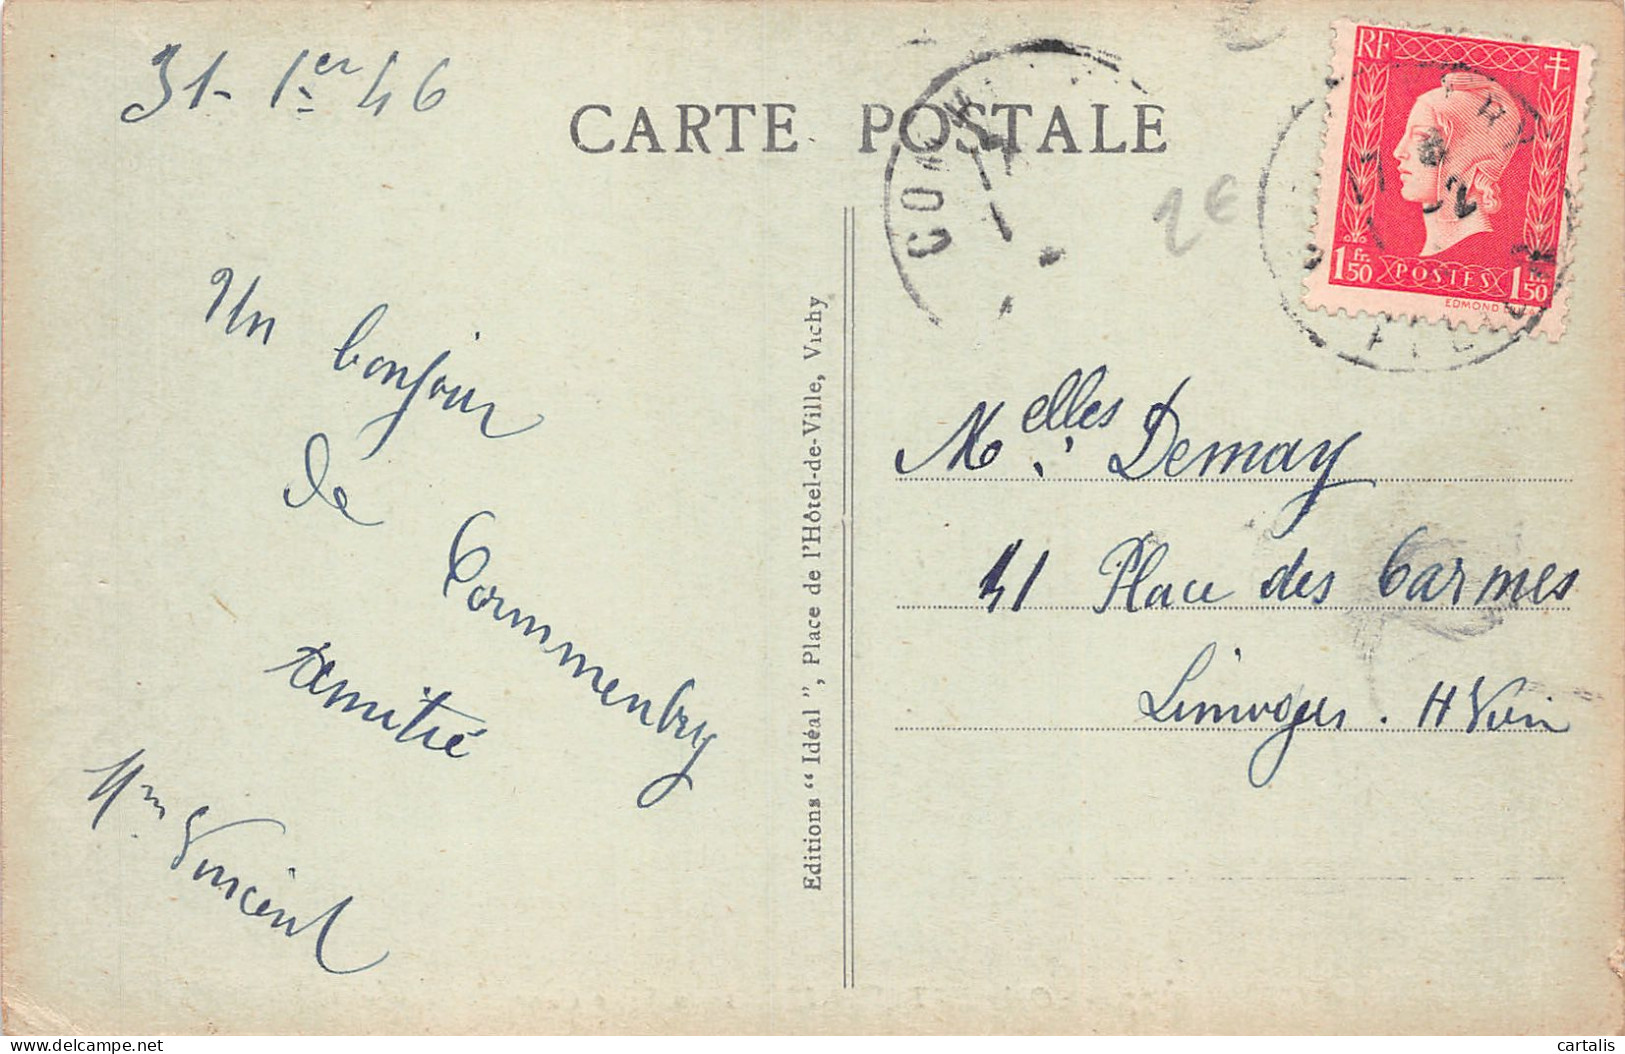 31- 1er 46
CARTE POSTALE
COMM
2€
RF
1 Fr. 50 POSTES 1 Fr. 50
EDMOND
Un bonjour
de Commentry
Amitié
Mme Vincent
Editions “ Idéal ”, Place de l'Hôtel-de-Ville, Vichy
Melles Demay
41 Place des Carmes
Limoges. H Vien
delcampe.net
cartalis